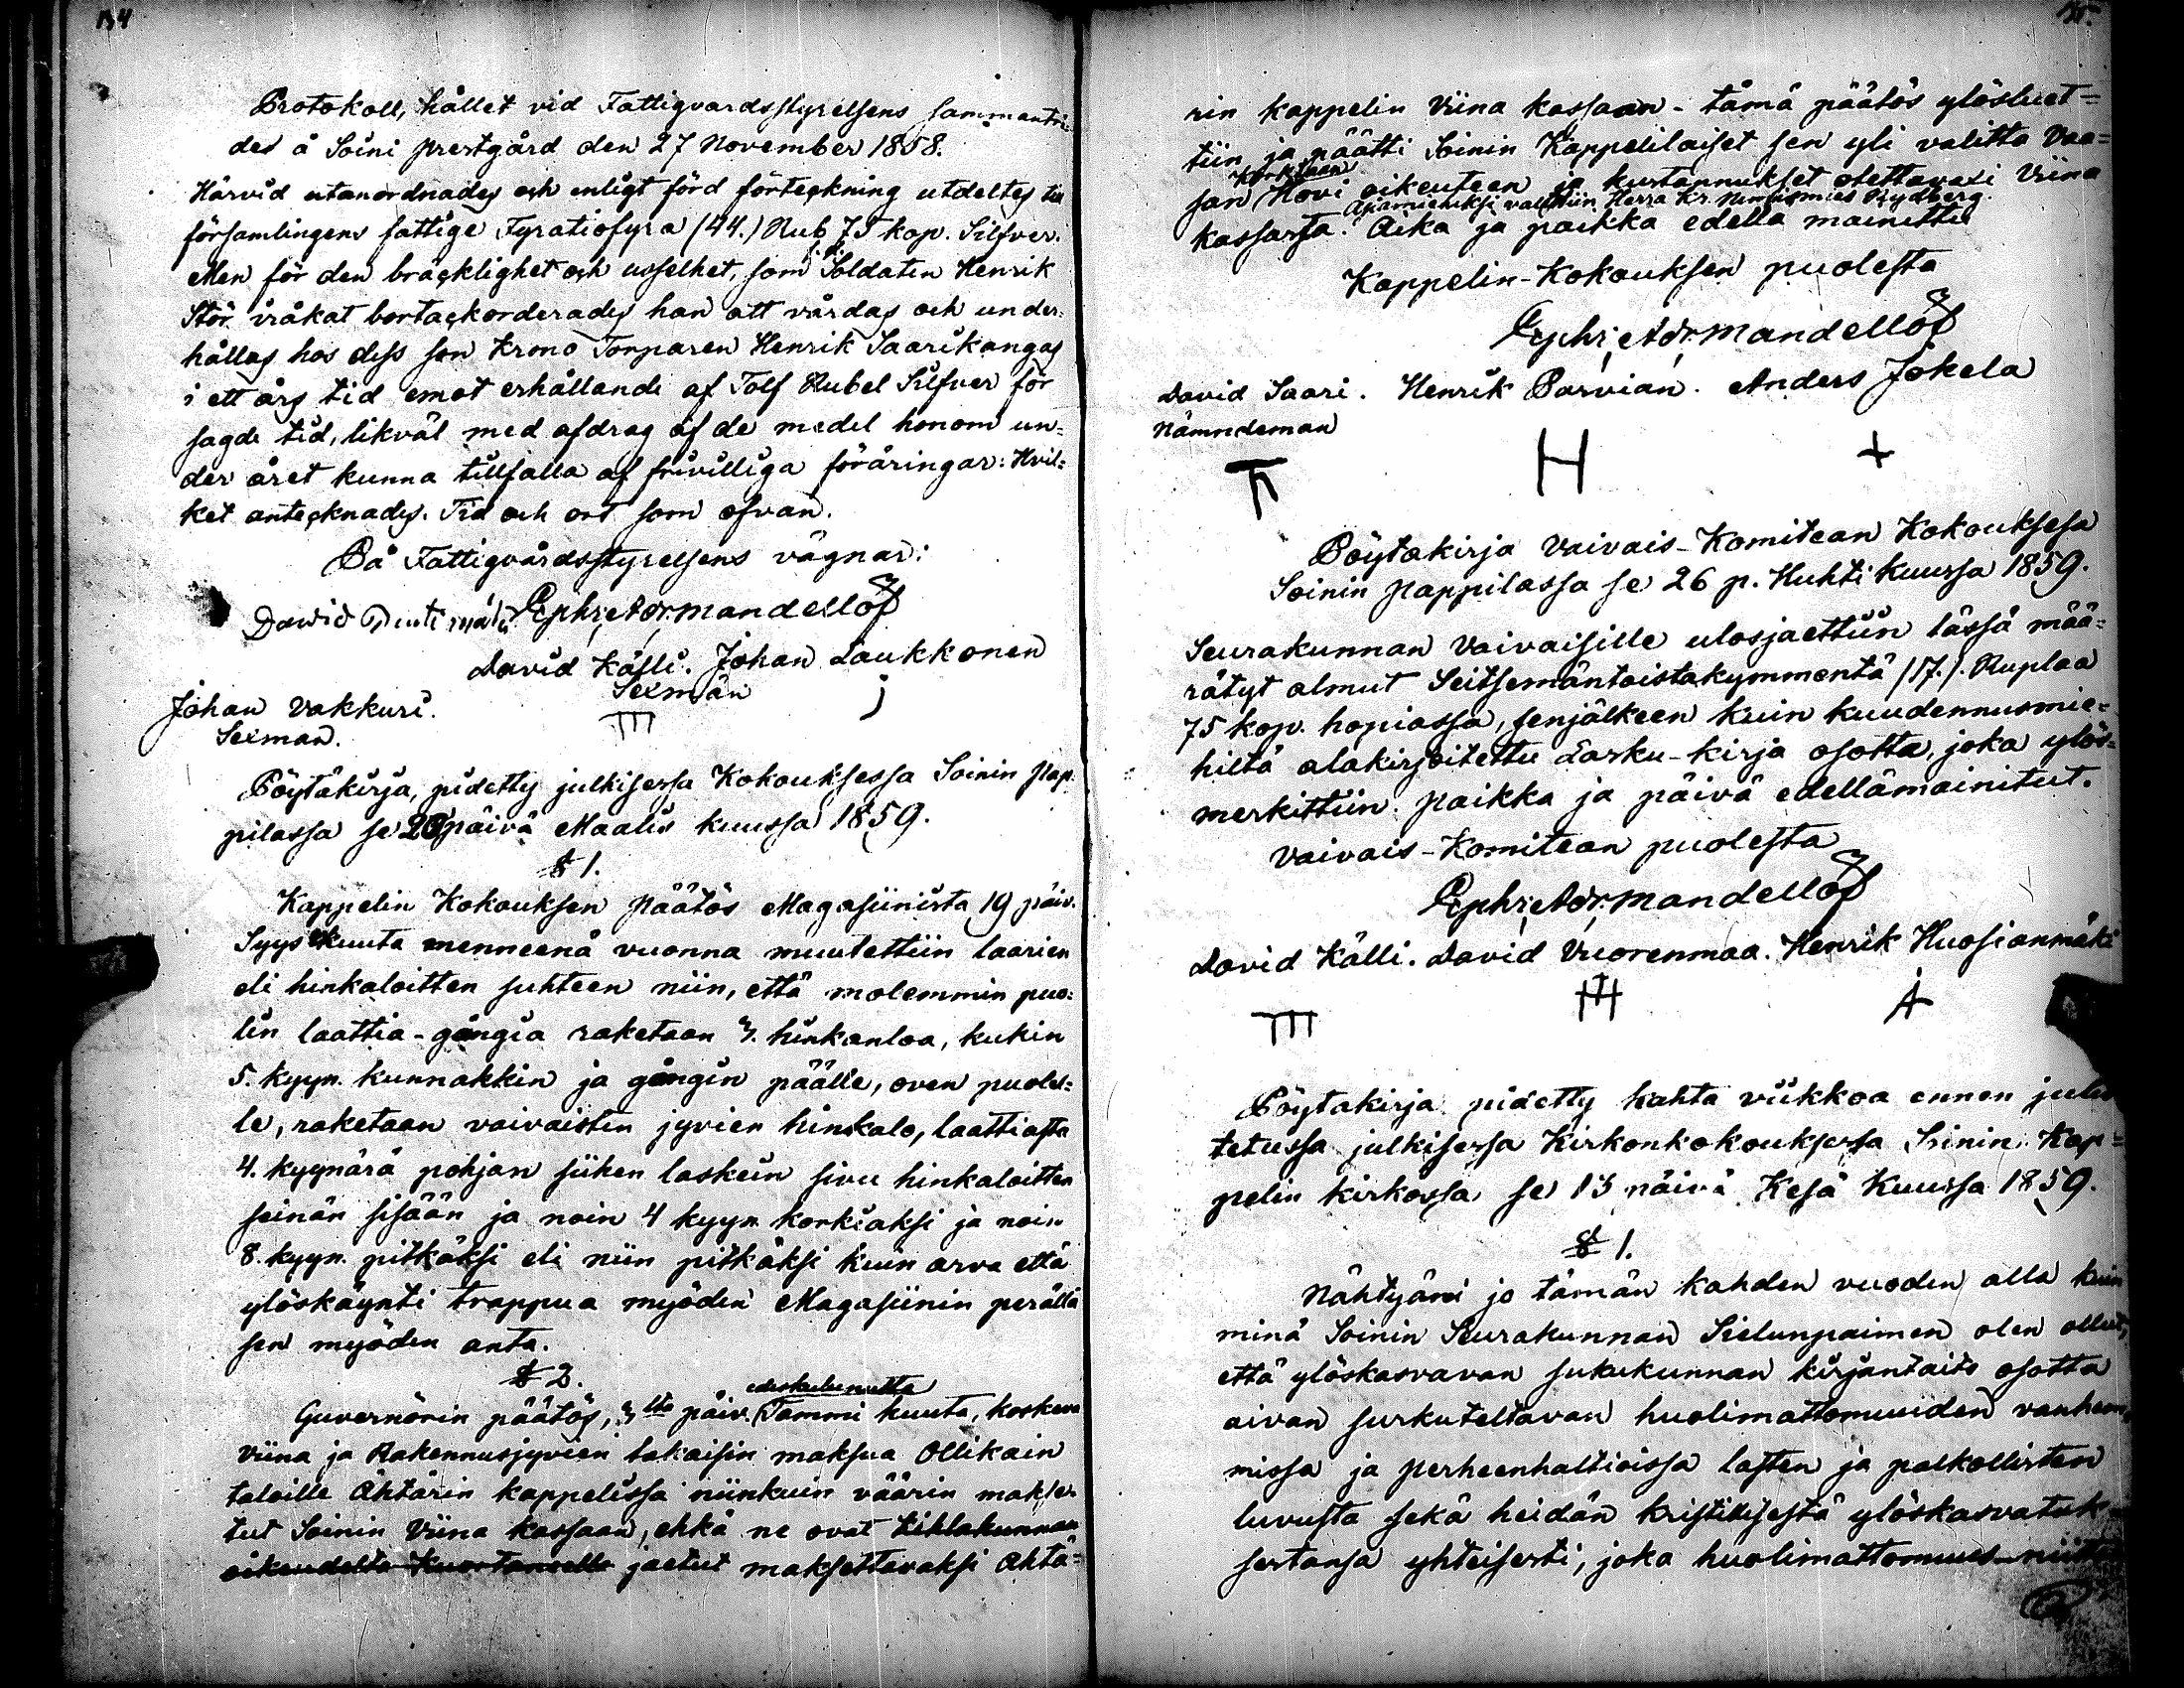 134
Protokoll, hållet vid Fattigvardsstyrelsens sammantri-
des å Soini prestgård den 27 November 1858.
Härvid utanordnades och enligt förd förteckning utdeltes till
församlingens fattige Fyratiofyra (44.) Rub 75 kop. Silfver.
Men för den bräcklighet och usselhet, som f.d. Soldaten Henrik
Stör råkat bortackorderades han att vårdas och under-
hållas hos dess son Krono Torparen Henrik Saarikangas
i ett års tid emot erhållande af Tolf Rubel Silfver för
sagde tid, likväl med afdrag af de medel honom un-
der året kunna tillfalla af frivilliga föräringar: Hvil-
ket antecknades. Tid och ort som ofvan.
På Fattigvårdsstyrelsens vägnar:
David Ephr. Adr. Mandellöf
David Källi. Johan Laukkonen
Sexman
Johan Vakkuri.
Sexman.
Pöytäkirja, pidetty julkisessa Kokouksessa Soinin Pap-
pilassa se 20 päivä Maalis kuussa 1859.
§ 1.
Kappelin Kokouksen päätös Magasiinista 19 päiv.
Syys kuuta menneenä vuonna muutettiin laarien
eli hinkaloitten suhteen niin, että molemmin puo-
lin laattia-gångia raketaan 3. hinkanloa, kukin
5. kyyn. kunnakkin ja gångin päälle, oven puolel-
le, raketaan vaivaisten jyvien hinkalo, laattiasta
4. kyynärä pohjan siihen laskein sivu hinkaloitten
seinän sisään ja noin 4 kyyn korkiaksi ja noin
8. kyyn. pitkäksi eli niin pitkäksi kuin arva että
ylöskäynti trappua myöden Magasiinin perällä
sen myöden anta.
§ 2.
Guvernörin päätös, 3 lta päiv. edeskulunutta Tammi kuuta, koskeva
Viina ja Rakennusjyvien takaisin maksua Ollikain
taloille Ähtärin kappelissa niinkuin väärin makse-
tut Soinin Viina kassaan, ehkä ne ovat Kihlakunnan
oikeudelta Kuortaneella jaetut maksettavaksi Ähtä-
rin kappelin Viina kassaan - tämä päätös ylösluet-
tiin ja päätti Soinin Kappelilaiset sen yli valitta Vaa-
san Korkiaan Hovi oikeuteen ja kustannukset otettavaxi Viina
kassasta. Asiamieheksi valittiin Herra Kr. Nimismies Rydberg. Aika ja paikka edellä mainittu
Kappelin-Kokouksen puolesta
Ephr. Adr. Mandellöf
David Saari. Henrik Parvian. Anders Jokela
Nämndeman
H +
Pöytakirja Vaivais-Komitean Kokouksesa
Soinin pappilassa se 26 p. Huhti kuussa 1859.
Seurakunnan Vaivaisille ulosjaettiin tässä mää-
rätyt almut Seitsemäntoistakymmentä (17.). Ruplaa
75 kop. hopiassa, senjälkeen kuin kuudennusmie-
hiltä alakirjoitettu Lasku-kirja osotta, joka ylös-
merkittiin. paikka ja päivä edellämainitut.
Vaivais-Komitean puolesta
Ephr. Adr. Mandellöf
David Källi. David Vuorenmaa. Henrik Huosianmäki
Pöytakirja pidetty kahta viikkoa ennen julis
tetussa julkisessa Kirkonkokouksessa Soinin Kap-
pelin kirkossa se 13 päivä Kesä Kuussa 1859.
§ 1.
Nähtyäni jo tämän kahden vuoden alla kuin
minä Soinin Seurakunnan Sielunpaimen olen ollut,
että ylöskasvavan sukukunnan kirjantaito osotta
aivan surkuteltavan huolimattomuuden vanhem-
missa ja perheenhaltioissa lasten ja palkollisten
luvusta sekä heidän kristillisestä ylöskasvatuk-
sestansa yhteisesti, joka huolimattomuus